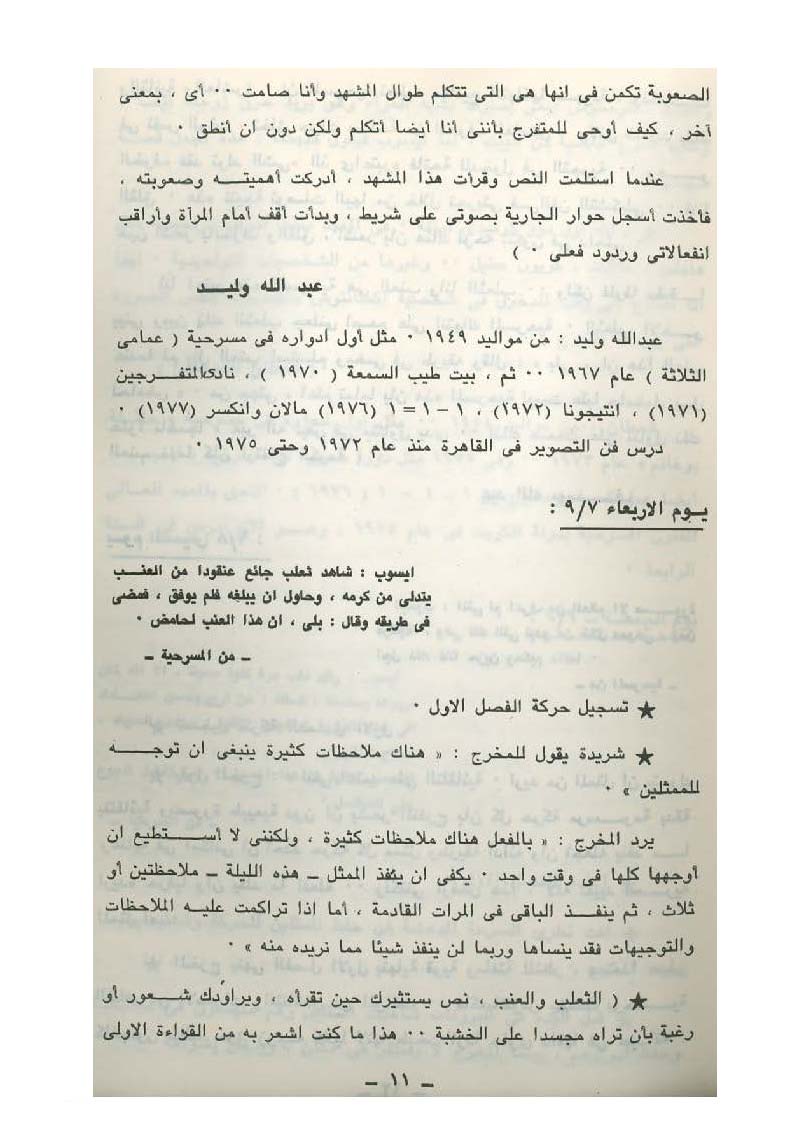 الصعوبة تكمن فى انها هى التى تتكلم طوال المشهد وأنا صامت ٠٠ أى ، بمعنى
آخر ، كيف أوحى للمتفرج بأننى أنا أيضا أتكلم ولكن دون ان أنطق ٠
عندما استلمت النص وقرأت هذا المشهد ، أدركت أهميتــه وصعوبته ،
فأخذت أسجل حوار الجارية بصوتى على شريط ، وبدأت أقف أمام المرآة وأراقب
انفعالاتى وردود فعلى ٠ )
عبد الله وليــد
عبدالله وليد : من مواليد ١٩٤٩ ٠ مثل أول أدواره فى مسرحية ( عمامى
الثلاثة ) عام ١٩٦٧ ٠٠ ثم ، بيت طيب السمعة ( ١٩٧٠ ) ، نادى المتفرجين
(١٩٧١) ، انتيجونا (١٩٧٢) ، ١ – ١ = ١ (١٩٧٦) مالان وانكسر (١٩٧٧) ٠
درس فن التصوير فى القاهرة منذ عام ١٩٧٢ وحتى ١٩٧٥ ٠
يــوم الاربعاء ٩/٧ :
ايسوب : شاهد ثعلب جائع عنقودا من العنــب
يتدلى من كرمه ، وحاول ان يبلغه فلم يوفق ، فمضى
فى طريقه وقال : بلى ، ان هذا العنب لحامض ٠
– من المسرحية –
★ تسجيل حركة الفصل الاول ٠
★ شريدة يقول للمخرج : « هناك ملاحظات كثيرة ينبغى ان توجــه
للممثلين » ٠
يرد المخرج : « بالفعل هناك ملاحظات كثيرة ، ولكننى لا أســتطيع ان
أوجهها كلها فى وقت واحد ٠ يكفى ان ينفذ الممثل – هذه الليلة – ملاحظتين أو
ثلاث ، ثم ينفــذ الباقى فى المرات القادمة ، أما اذا تراكمت عليــه الملاحظات
والتوجيهات فقد ينساها وربما لن ينفذ شيئا مما نريده منه » ٠
★ ( الثعلب والعنب ، نص يستثيرك حين تقرأه ، ويراودك شــعور أو
رغبة بأن تراه مجسدا على الخشبة ٠٠ هذا ما كنت اشعر به من القراءة الاولى
– ١١ –